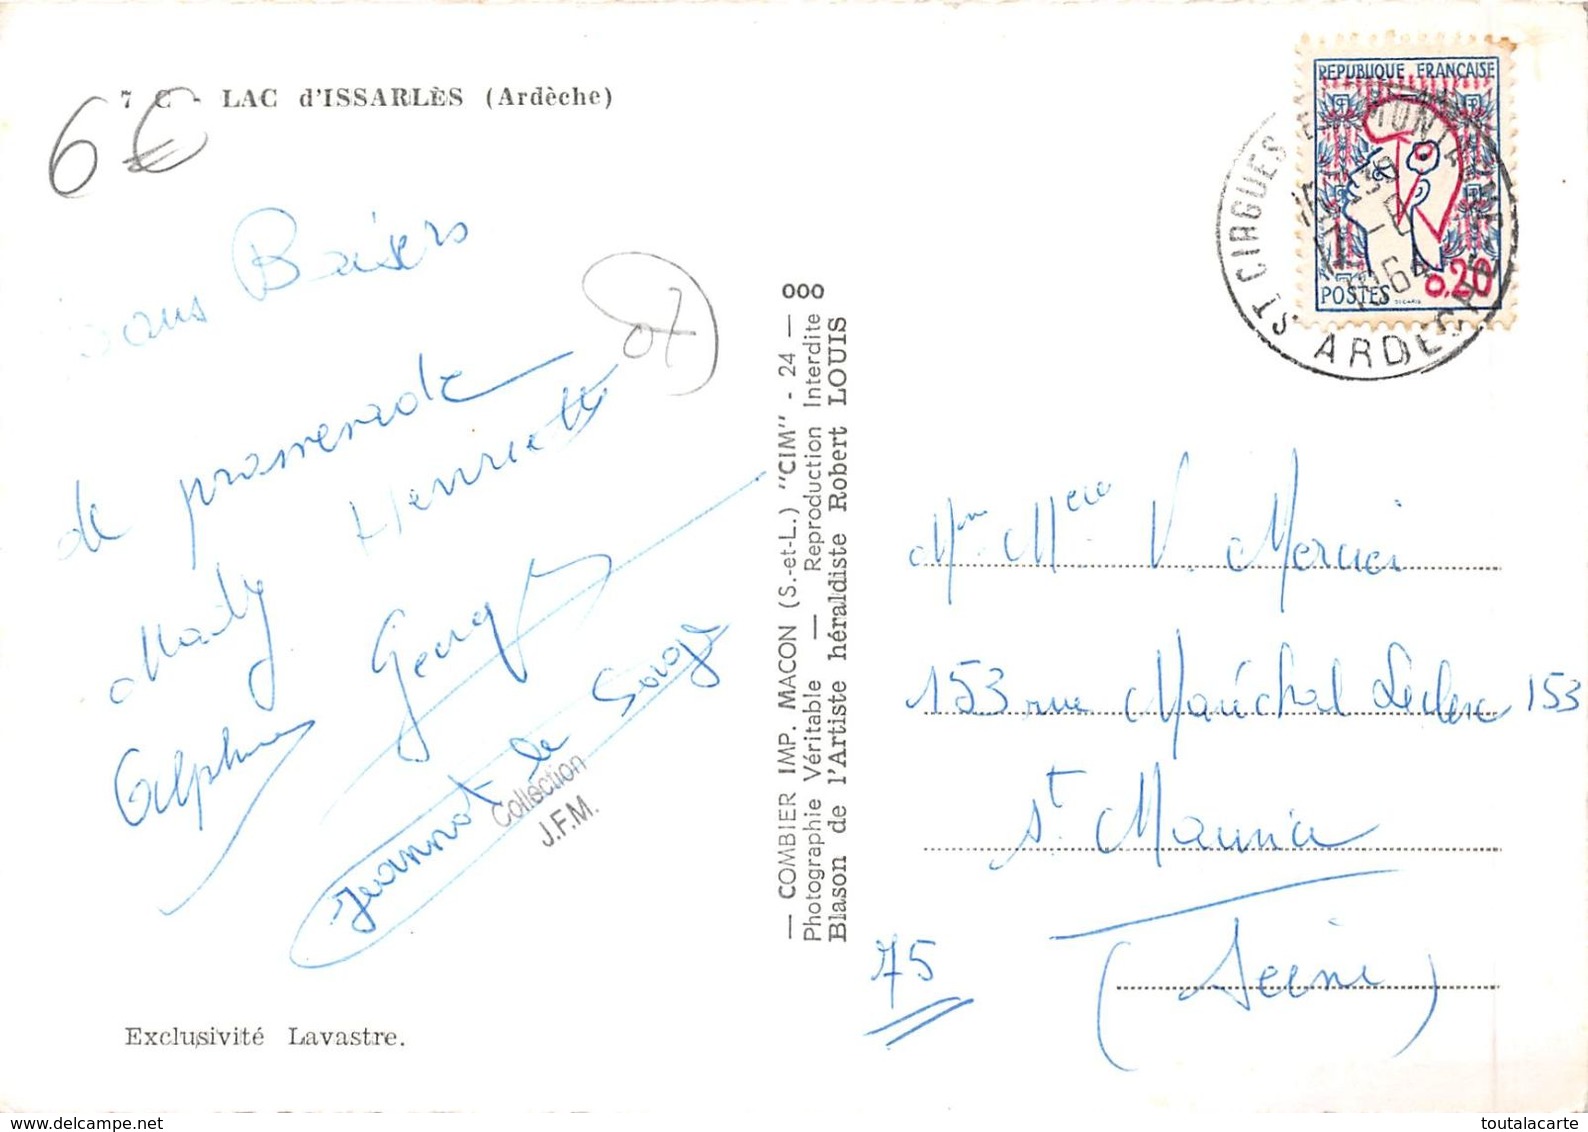 7 C - LAC d'ISSARLÈS (Ardèche)
6€
Bons Baisers
de promenade
Henriette
07
Mady
Georges
Alphonse
Jeannot le
Collection
J.F.M.
Exclusivité Lavastre.
— COMBIER IMP. MACON (S.-et-L.) "CIM" - 24 — 000
Photographie Véritable — Reproduction Interdite
Blason de l'Artiste héraldiste Robert LOUIS
REPUBLIQUE FRANÇAISE
POSTES 0,20
ST CIRGUES EN MONTAGNE
1964
ARDECHE
V. Mercier
153 rue Maréchal Leclerc 153
St. Maurice
75 (Seine)
delcampe.net
toutalacarte